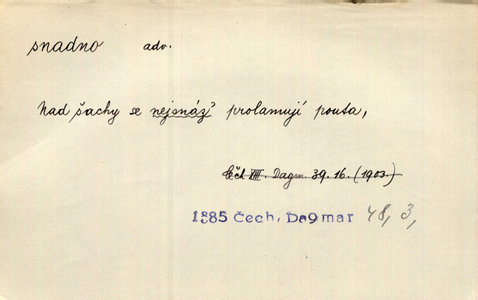 snadno adv.
Nad šachy se nejsnáz' prolamují pouta,
Čch VIII. Dagm. 39. 16. (1903)
1885 Čech, Dagmar 48, 3,